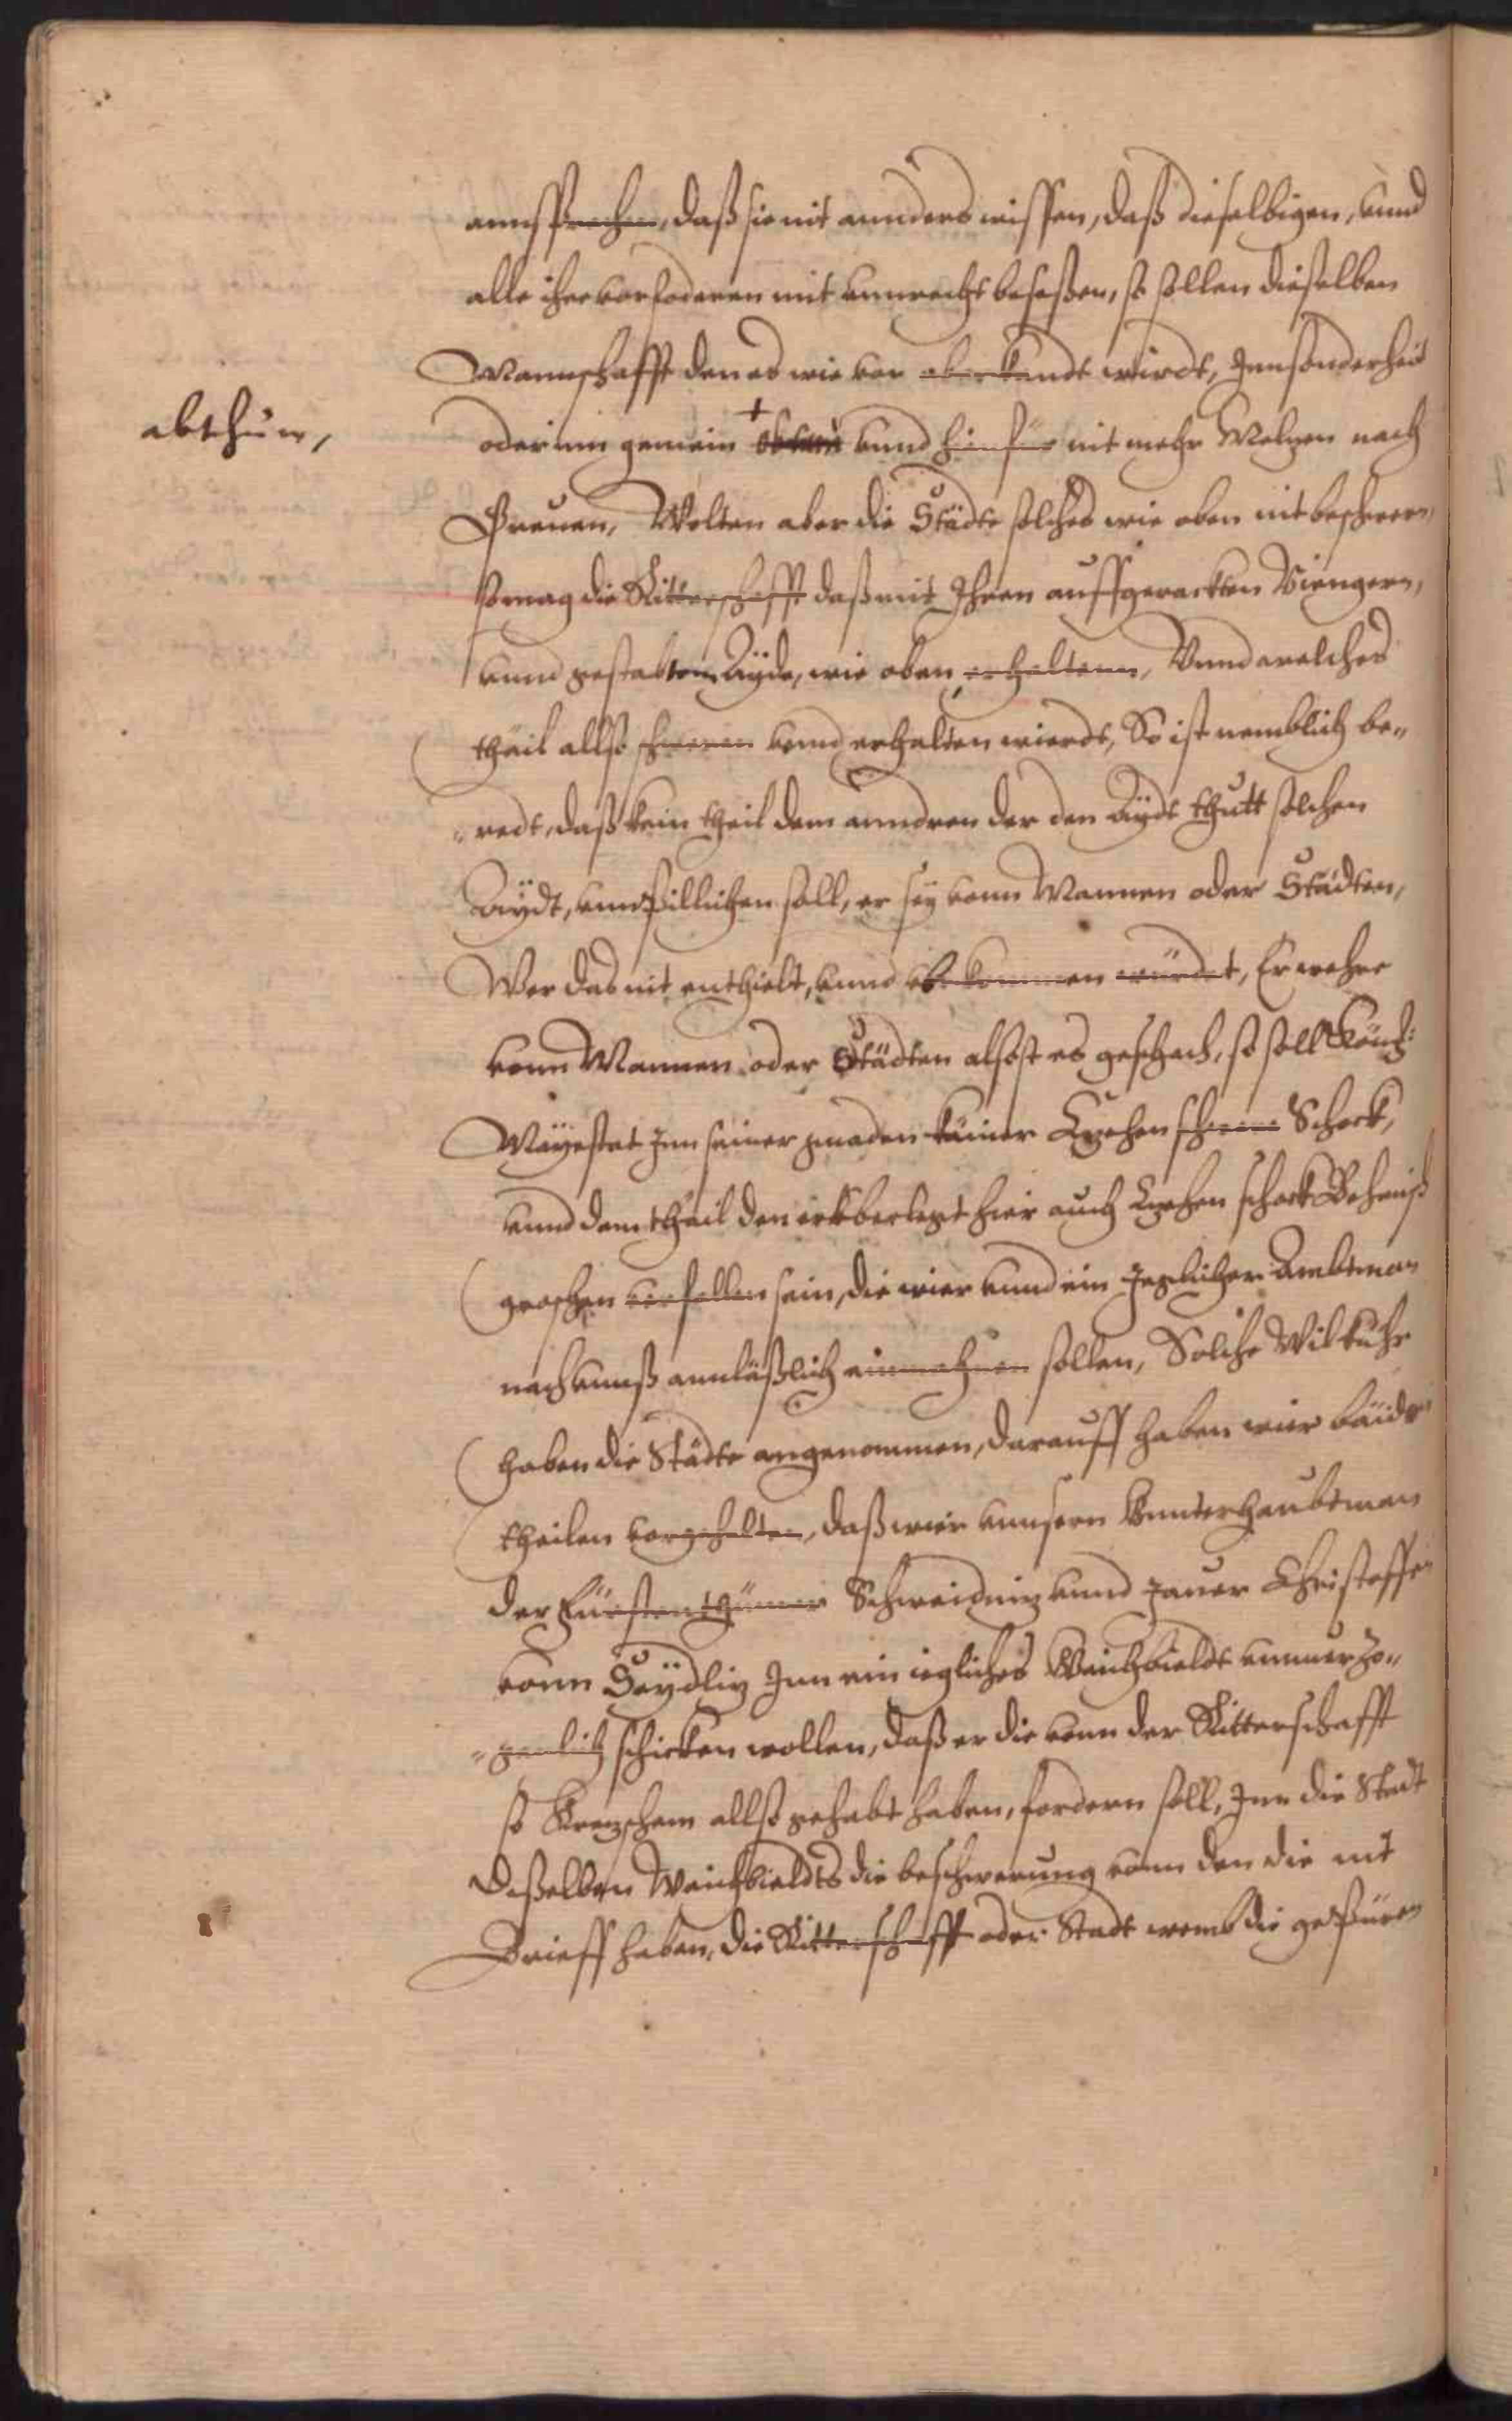 aussprechen, daß sie nit annders wissen, daß dieselbigen, vnnd
alle ihre vorfoderen mit vnnrecht besessen, so sollen dieselben
Mannschafft den es wie vor aberkandt wirdt, Innsonderheit
abthun,
oder inn gemein + vnnd hinfür nit mehr Melzen noch
Breuen, Wolten aber die Städte solches wie oben nit beschweren
so mag die Ritterschafft daß mit Ihren auffgereckten Viengern,
vnnd gestabtem Ayde, wie oben erhaltenn, Vnnd welches
theil allso schweren vnnd erhalten wierdt, So ist nemblich be„
„redt, daß kein theil dem anndren der den Aydt thutt solchen
Aydt, vnnbillichen soll, er sey vonn Mannen oder Städten,
Wer das nit enthielt, vnnd vberkommen würdet, Er wehre
vonn Mannen oder Städten alsofft es geschach, so soll Könich:
Mäyestat Inn seiner gnaden Camer Sechzehen schwere Schock,
vnnd dem theil den er vberlegt hier auch Sechzehen schock Behemisch
groschen verfallen sein, die wier vnnd ein Jeglicher Ambtman
nach vnnß vnnläßlich einmahnen sollen, Solche Wilkuhr
haben die Städte angenommen, darauff haben wier baider
theilen vorgehalten, daß wier vnnsern Vnnterhaubtman
der Fürstenthümer Schweidniz vnnd Jauer Christoffen
vonn Seydliz Inn ein iegliches Weichbieldt vnnuerzo„
„genlich schicken wollen, daß er die vonn der Ritterschafft
so Krezschem allso gehabt haben, fordern soll, Inn die Stadt
deßelben Weichbieldts die beschwerung vonn den die nit
Brieff haben, die Ritterschafft oder Stadt wemb die gebüren